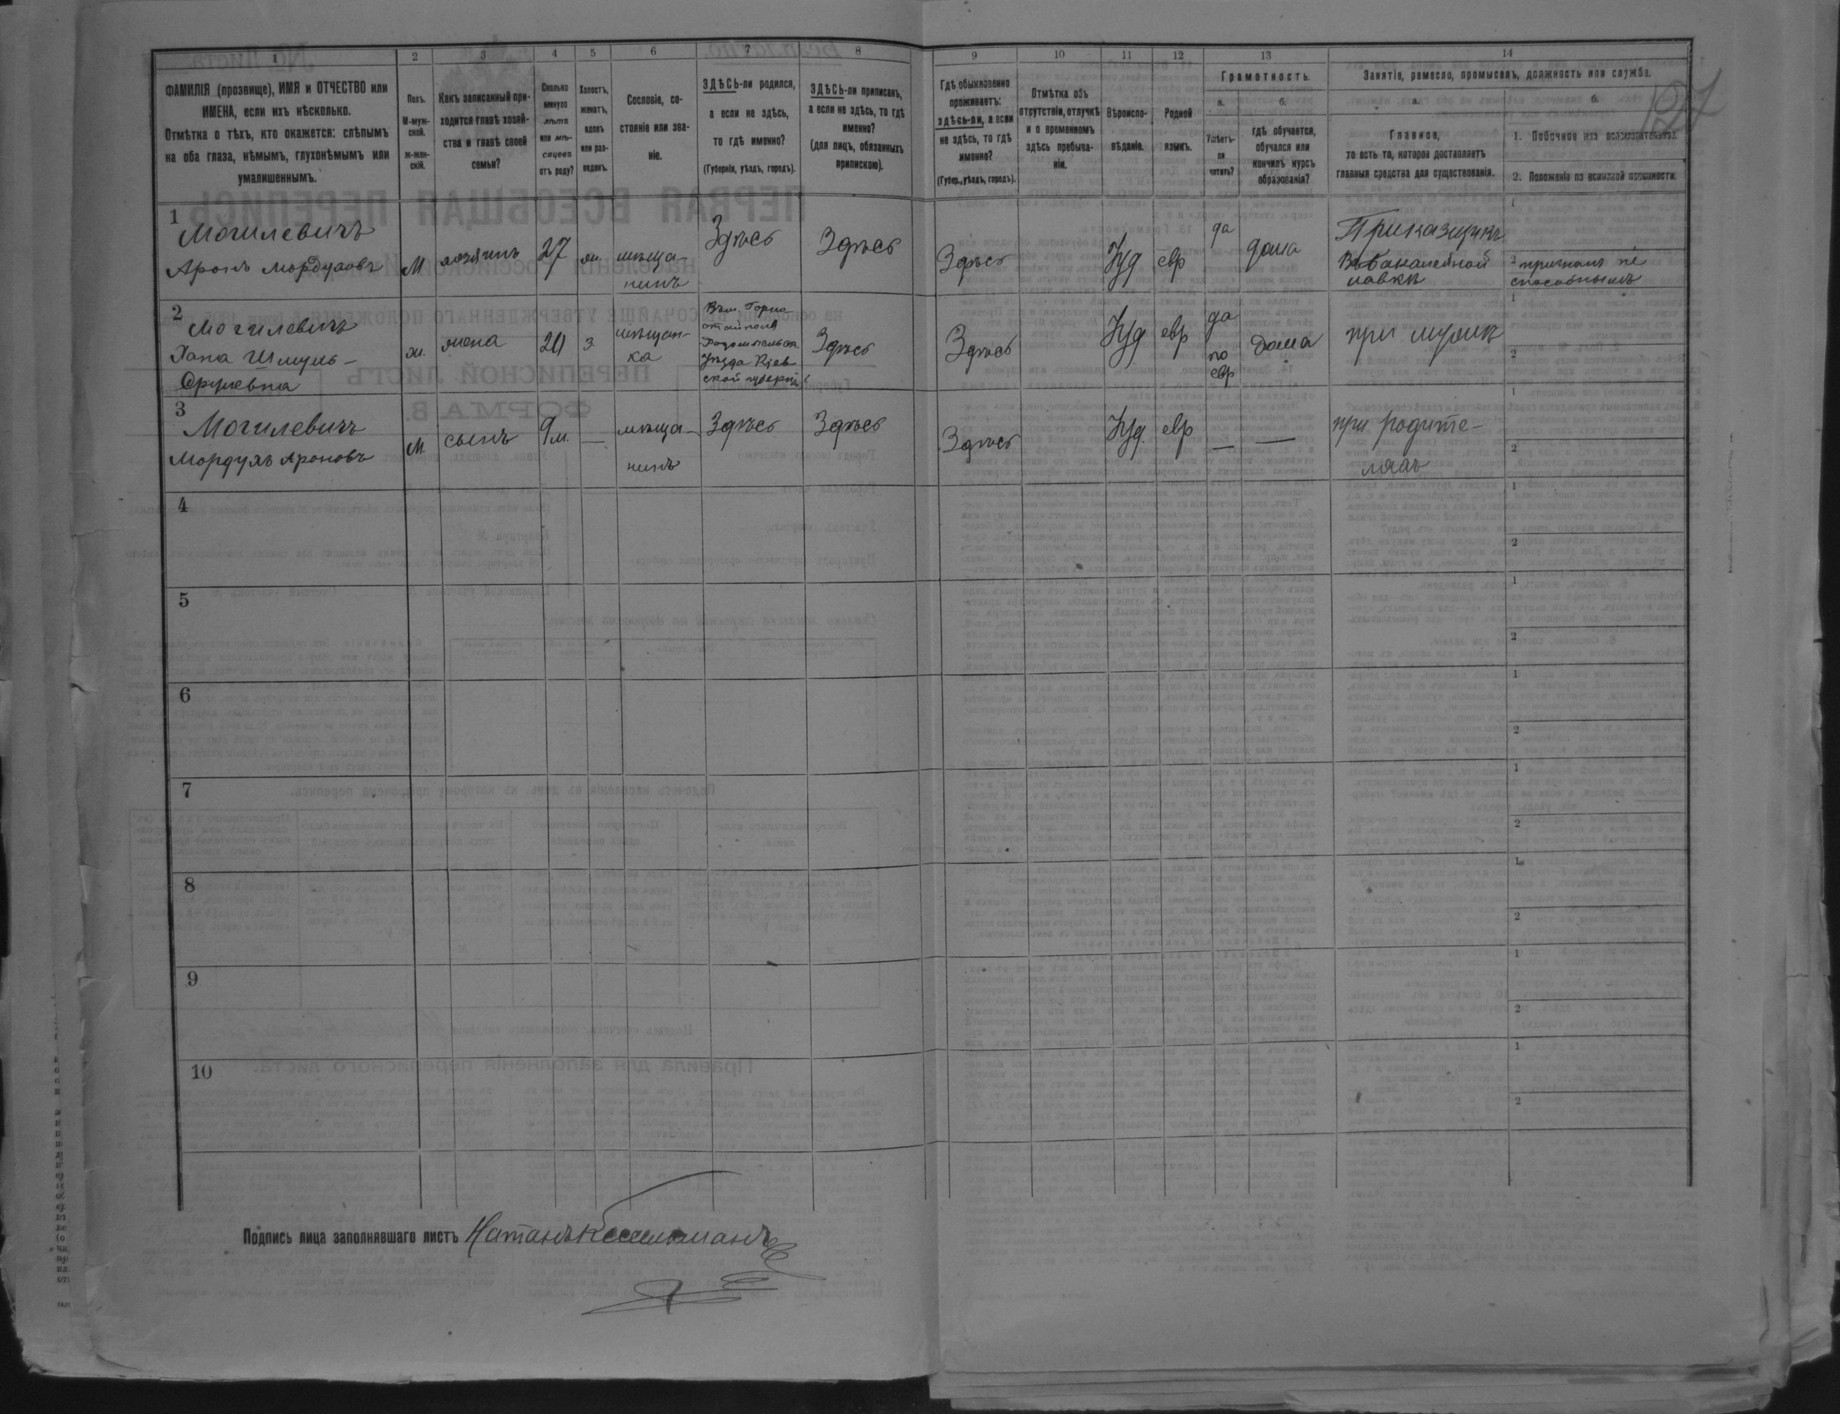 127
1 2 3 4 5 6 7 8 9 10 11 12 13 14
ФАМИЛІЯ (прозвище), ИМЯ и ОТЧЕСТВО или
ИМЕНА, если ихъ нѣсколько.
Отмѣтка о тѣхъ, кто окажется: слѣпымъ
на оба глаза, нѣмымъ, глухонѣмымъ или
умалишеннымъ.
Полъ.
М-муж-
ской.
Ж-жен-
скій.
Какъ записанный при-
ходится главѣ хозяй-
ства и главѣ своей
семьи?
Сколько
минуло
лѣтъ
или мѣ-
сяцевъ
отъ роду?
Холостъ,
женатъ,
вдовъ
или раз-
веденъ.
Сословіе, со-
стояніе или зва-
ніе.
ЗДѢСЬ-ли родился,
а если не здѣсь,
то гдѣ именно?
(Губернія, уѣздъ, городъ).
ЗДѢСЬ-ли приписанъ,
а если не здѣсь, то гдѣ
именно?
(для лицъ, обязанныхъ
припискою).
Гдѣ обыкновенно
проживаетъ:
здѣсь-ли, а если
не здѣсь, то гдѣ
именно?
(Губер., уѣздъ, городъ).
Отмѣтка объ
отсутствіи, отлучкѣ
и о временномъ
здѣсь пребыва-
ніи.
Вѣроиспо-
вѣданіе.
Родной
языкъ.
Грамотность.
а.
Умѣетъ-
ли
читать?
б.
гдѣ обучается,
обучался или
кончилъ курсъ
образованія?
Занятіе, ремесло, промыселъ, должность или служба.
а.
Главное,
то есть то, которое доставляетъ
главныя средства для существованія.
б.
1. Побочное или вспомогательное.
2. Положеніе по воинской повинности.
1
Могилевичъ
Аронъ Мордуховъ
М
хозяинъ
27
жен.
мѣща-
нинъ
Здѣсь
Здѣсь
Здѣсь
Іуд
евр
да
дома
Приказчикъ
въ бакалейной
лавкѣ
1
2 признанъ не
способнымъ
2
Могилевичъ
Хана Шмуль-
Срулевна
ж.
жена
24
з
мѣщан-
ка
Уѣзда Кіев-
ской губерніи
Здѣсь
Здѣсь
Іуд
евр
да
по
евр
дома
при мужѣ
1
2
3
Могилевичъ
Мордухъ Ароновъ
М
сынъ
9 м.
—
мѣща-
нинъ
Здѣсь
Здѣсь
Здѣсь
Іуд.
евр
—
—
при родите-
ляхъ
1
2
4
1
2
5
1
2
6
1
2
7
1
2
8
1
2
9
1
2
10
1
2
Подпись лица заполнявшаго листъ